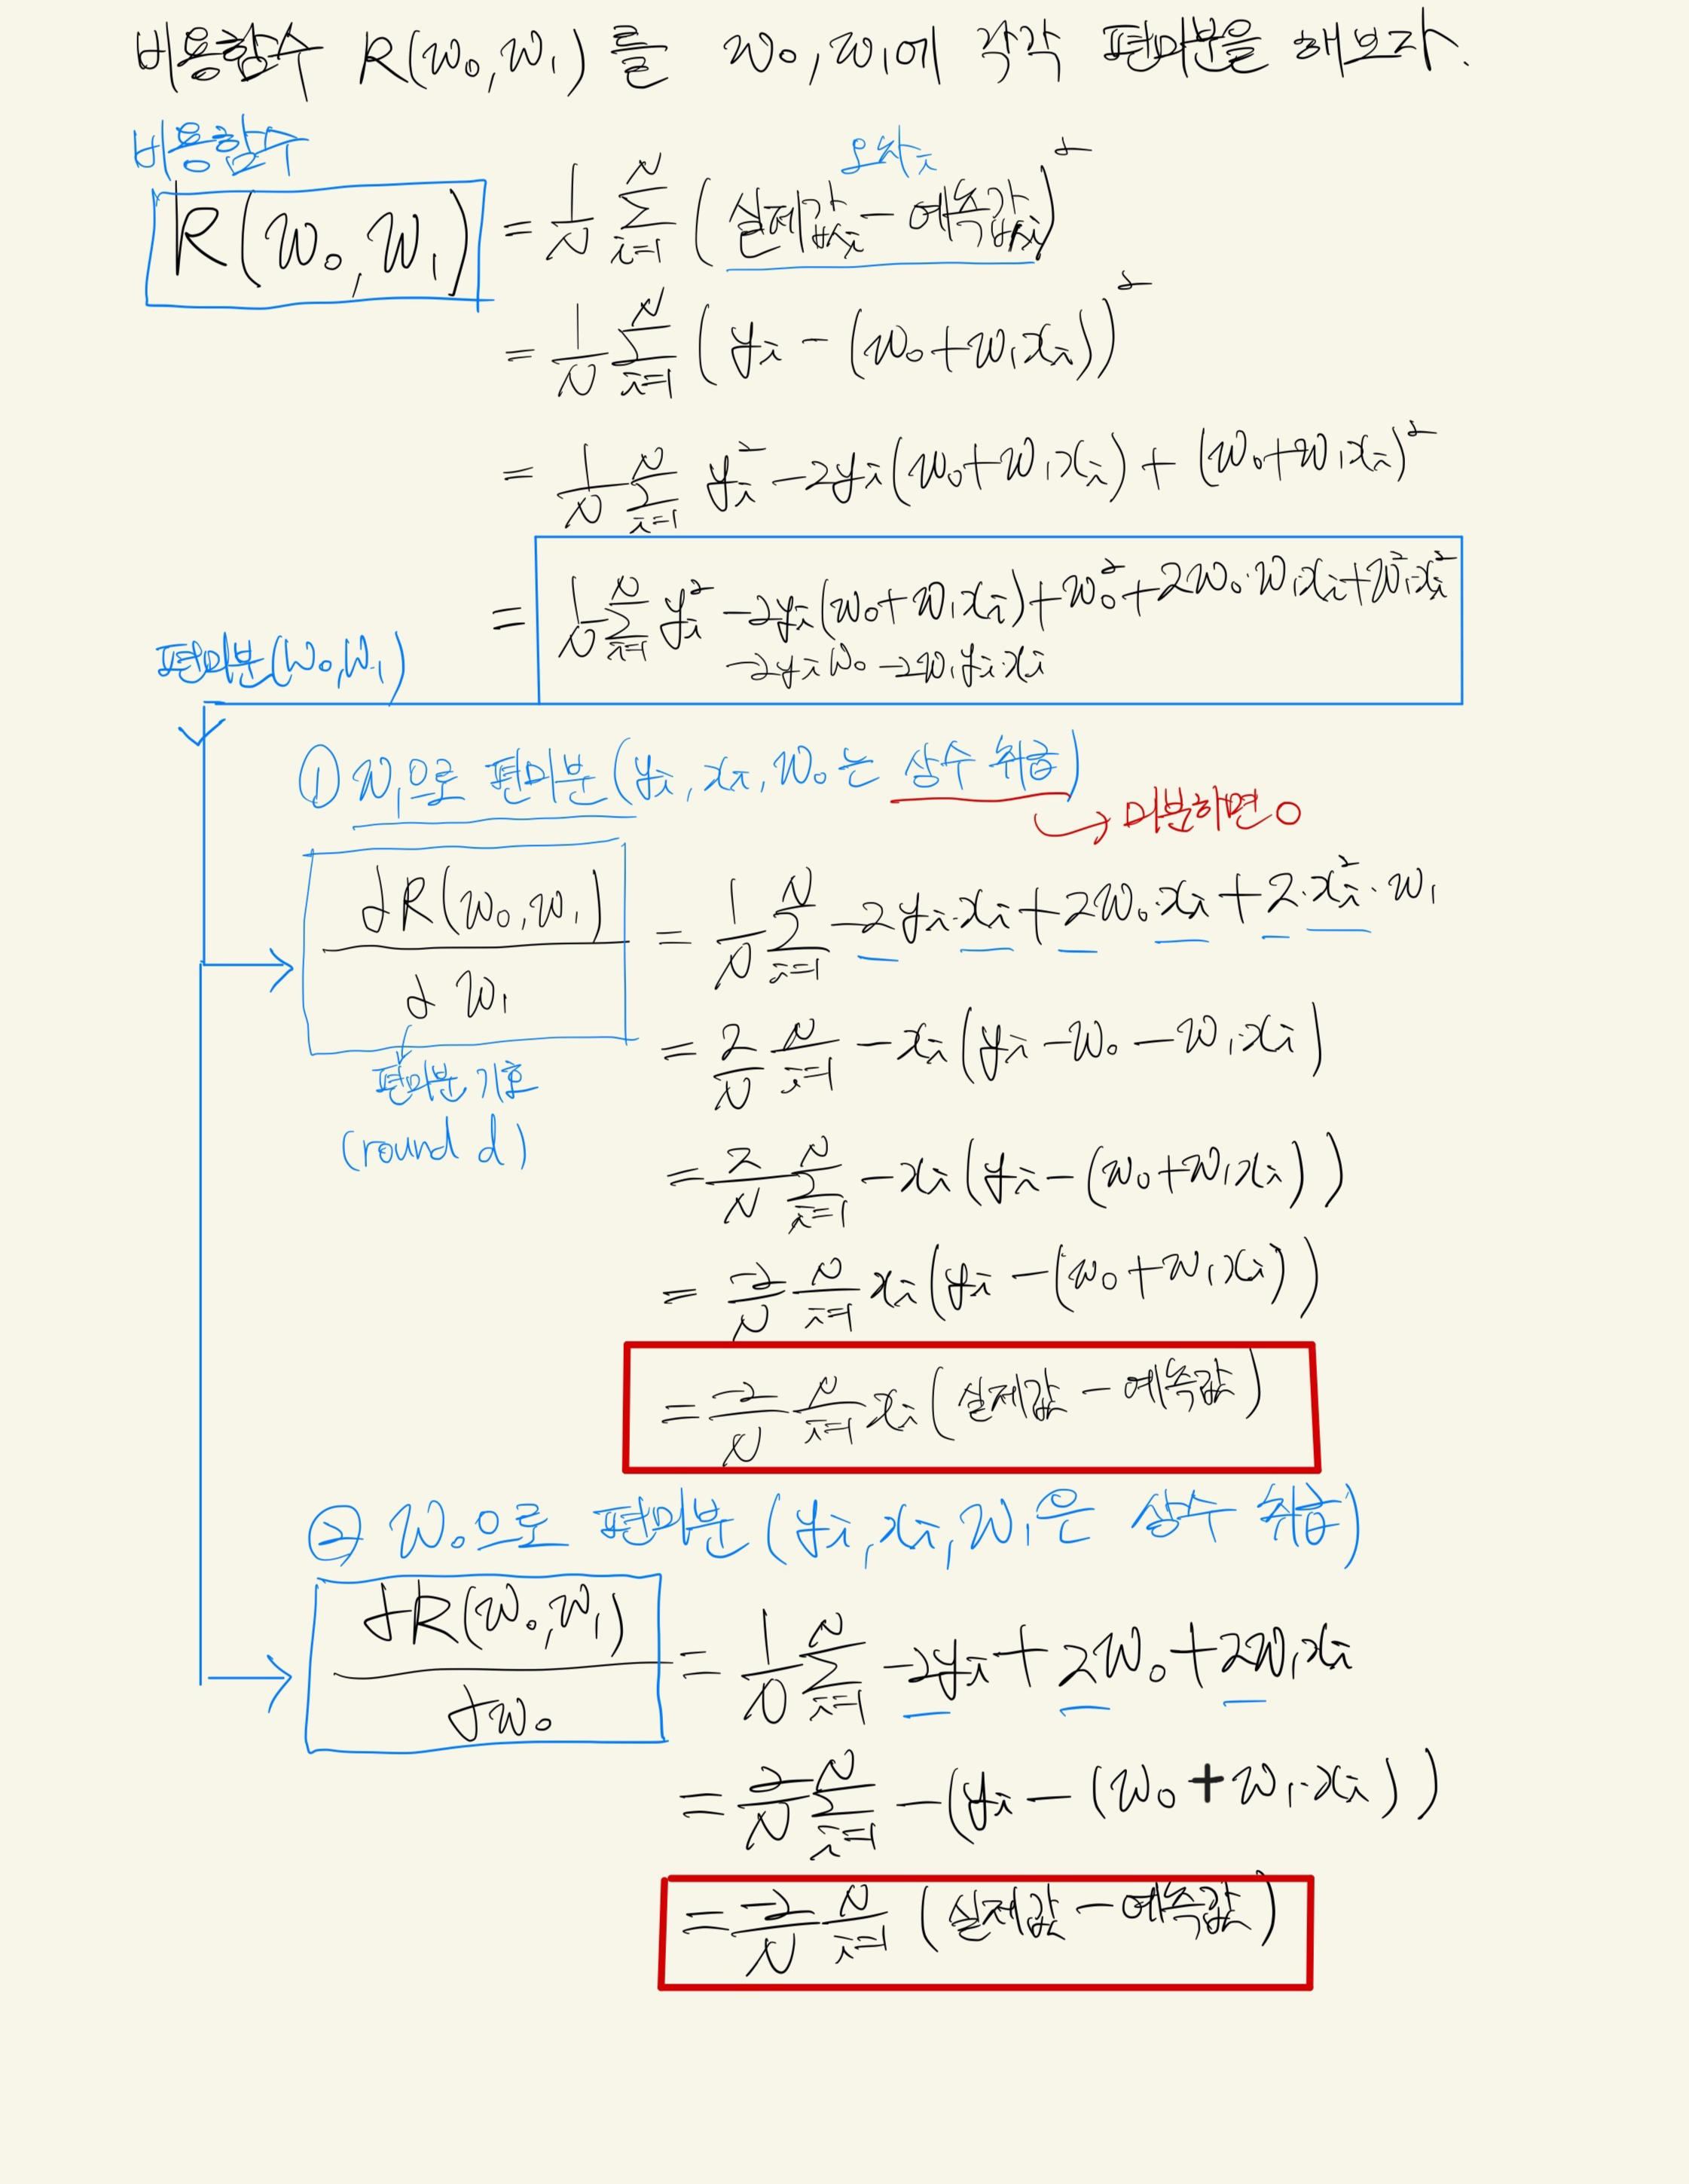 비용함수 R(w₀,w₁)를 w₀,w₁에 각각 편미분을 해보자.
비용함수
오차ᵢ
R(w₀,w₁) = 1/N Σ_{i=1}^{N} (실제값ᵢ - 예측값ᵢ)²
= 1/N Σ_{i=1}^{N} (yᵢ - (w₀+w₁xᵢ))²
= 1/N Σ_{i=1}^{N} yᵢ² - 2yᵢ(w₀+w₁xᵢ) + (w₀+w₁xᵢ)²
= 1/N Σ_{i=1}^{N} yᵢ² - 2yᵢ(w₀+w₁xᵢ) + w₀² + 2w₀·w₁xᵢ + w₁²·xᵢ²
-2yᵢw₀ - 2w₁yᵢ·xᵢ
편미분(w₀,w₁)
① w₁으로 편미분(yᵢ, xᵢ, w₀는 상수 취급)
→ 미분하면 0
∂R(w₀,w₁)/∂w₁ = 1/N Σ_{i=1}^{N} -2yᵢ·xᵢ + 2w₀·xᵢ + 2·xᵢ²·w₁
= 2/N Σ_{i=1}^{N} -xᵢ(yᵢ - w₀ - w₁·xᵢ)
편미분 기호
(round d)
= 2/N Σ_{i=1}^{N} -xᵢ(yᵢ - (w₀+w₁xᵢ))
= -2/N Σ_{i=1}^{N} xᵢ(yᵢ - (w₀+w₁xᵢ))
= -2/N Σ_{i=1}^{N} xᵢ(실제값 - 예측값)
② w₀으로 편미분(yᵢ, xᵢ, w₁은 상수 취급)
∂R(w₀,w₁)/∂w₀ = 1/N Σ_{i=1}^{N} -2yᵢ + 2w₀ + 2w₁xᵢ
= 2/N Σ_{i=1}^{N} -(yᵢ - (w₀+w₁·xᵢ))
= -2/N Σ_{i=1}^{N} (실제값 - 예측값)